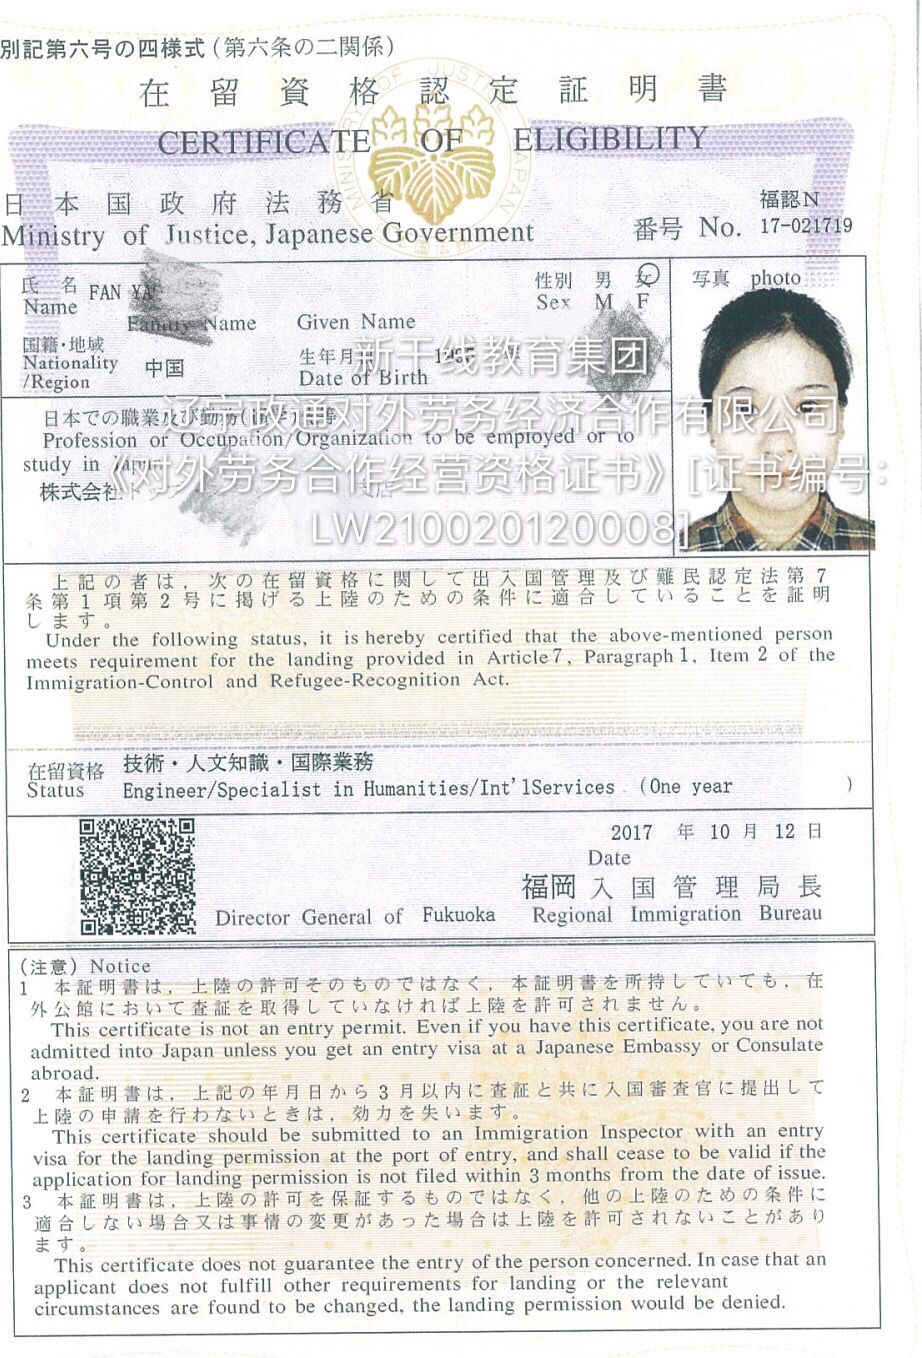 別記第六号の四様式(第六条の二関係)
在留資格認定証明書
CERTIFICATE OF ELIGIBILITY
日本国政府法務省
福認N
Ministry of Justice, Japanese Government
番号 No. 17-021719
氏名
Name FAN YA
Family Name Given Name
性別 男 女
Sex M F
写真 photo
国籍・地域
Nationality
/Region
中国
生年月
Date of Birth
新干线教育集团
日本での職業及び勤務
辽宁政通对外劳务经济合作有限公司
Profession or Occupation/Organization to be employed or to
study in Japan
《对外劳务合作经营资格证书》[证书编号:
株式会社
LW210020120008]
上記の者は,次の在留資格に関して出入国管理及び難民認定法第7
条第1項第2号に掲げる上陸のための条件に適合していることを証明
します。
Under the following status, it is hereby certified that the above-mentioned person
meets requirement for the landing provided in Article 7, Paragraph 1, Item 2 of the
Immigration-Control and Refugee-Recognition Act.
在留資格
Status
技術・人文知識・国際業務
Engineer/Specialist in Humanities/Int'lServices (One year )
2017 年 10 月 12 日
Date
福岡入国管理局長
Director General of Fukuoka Regional Immigration Bureau
(注意) Notice
1 本証明書は,上陸の許可そのものではなく,本証明書を所持していても,在
外公館において査証を取得していなければ上陸を許可されません。
This certificate is not an entry permit. Even if you have this certificate, you are not
admitted into Japan unless you get an entry visa at a Japanese Embassy or Consulate
abroad.
2 本証明書は,上記の年月日から3月以内に査証と共に入国審査官に提出して
上陸の申請を行わないときは,効力を失います。
This certificate should be submitted to an Immigration Inspector with an entry
visa for the landing permission at the port of entry, and shall cease to be valid if the
application for landing permission is not filed within 3 months from the date of issue.
3 本証明書は,上陸の許可を保証するものではなく,他の上陸のための条件に
適合しない場合又は事情の変更があった場合は上陸を許可されないことがあり
ます。
This certificate does not guarantee the entry of the person concerned. In case that an
applicant does not fulfill other requirements for landing or the relevant
circumstances are found to be changed, the landing permission would be denied.